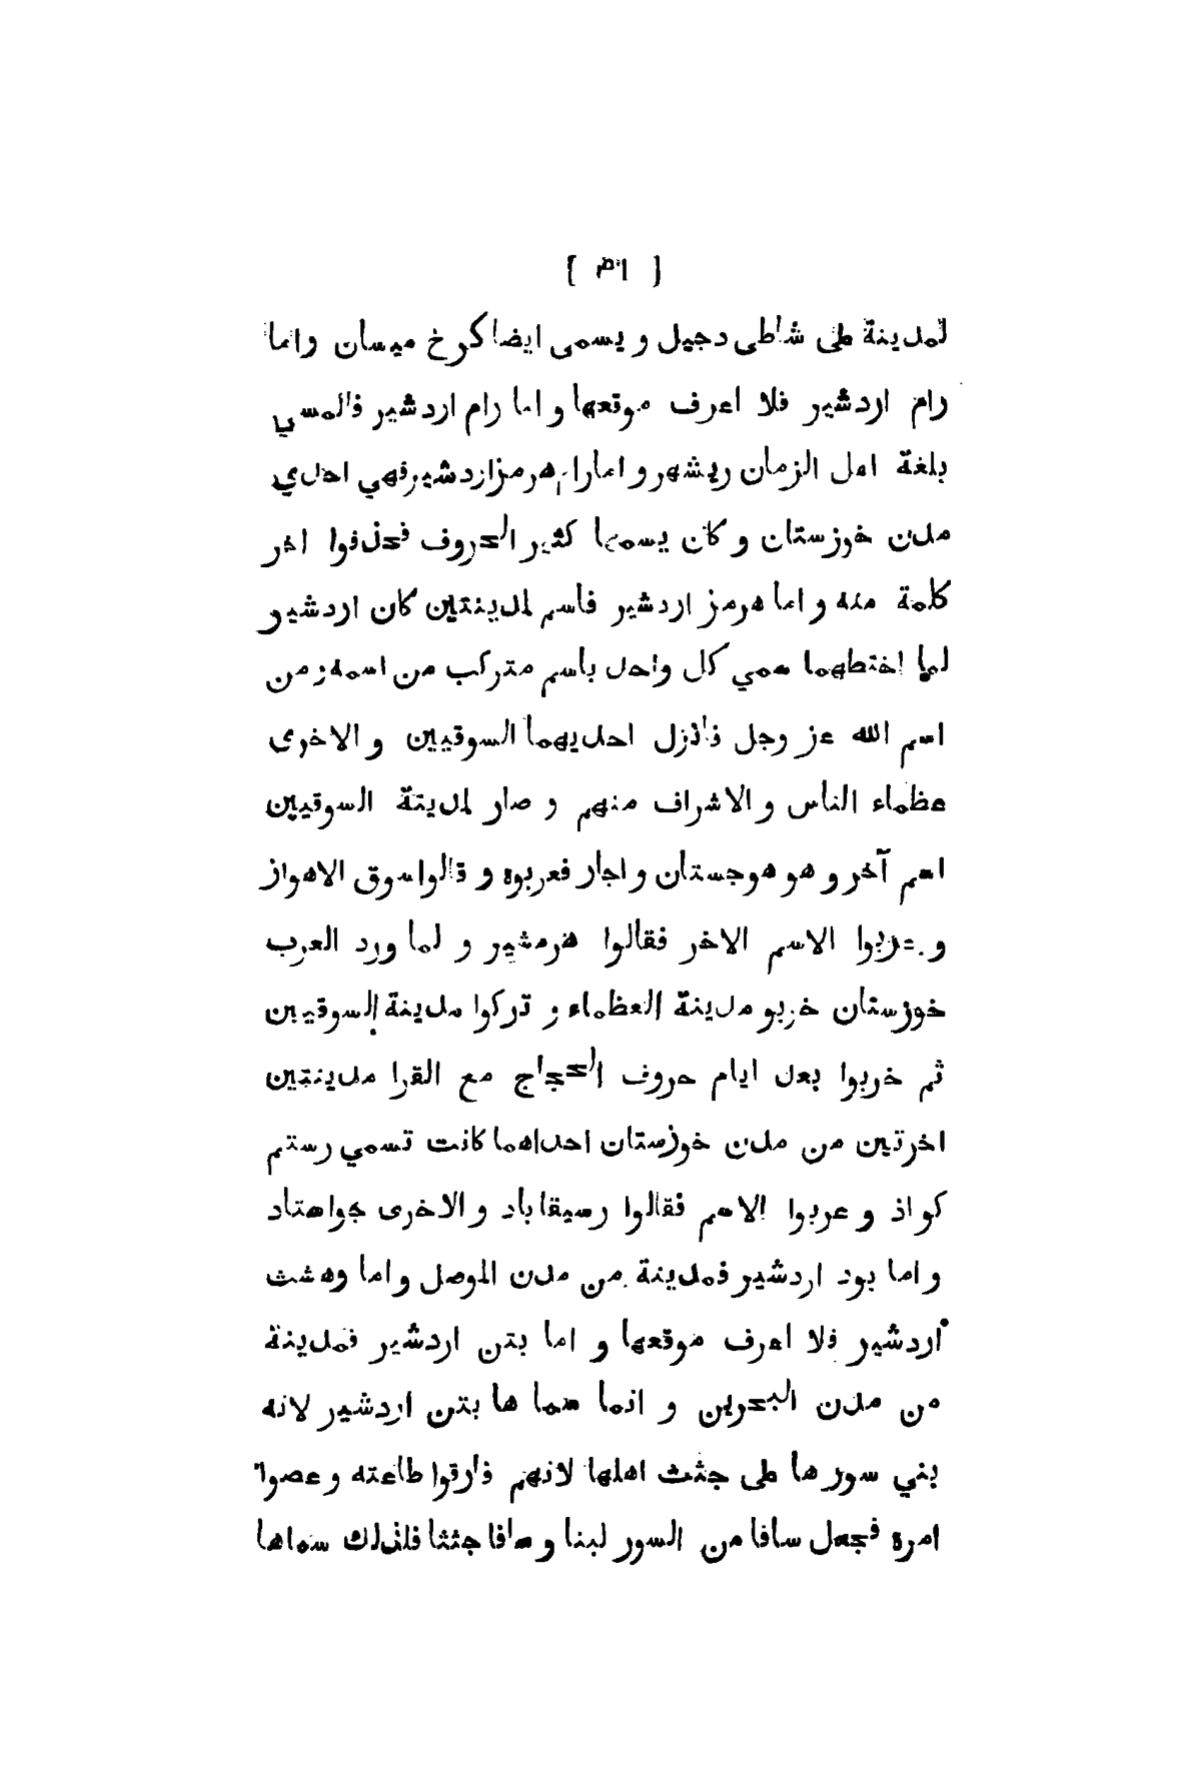 لمدينة على شاطى دجيل و يسمى ايضا كرخ ميسان واما
رام اردشير فلا اعرف موقعها و اما رام اردشير فالمسي
بلغة اهل الزمان ريشهر و اما رام هرمزاردشيرفهي احدي
مدن خوزستان و كان يسمها كثير الحروف فحذفوا اخر
كلمة منه و اما هرمز اردشير فاسم لمدينتين كان اردشير
لما اختطهما سمي كل واحد باسم متركب من اسمه و من
اسم الله عز وجل فانزل احديهما السوقيين و الاخرى
عظماء الناس و الاشراف منهم و صار لمديتة السوقيين
اسم آخر و هو هوجستان و اجار فعربوه و قالوا سوق الاهواز
و عربوا الاسم الاخر فقالوا هرمشير و لما ورد العرب
خوزستان خربو مدينة العظماء و تركوا مدينة السوقيين
ثم خربوا بعد ايام حروف الحجاج مع القرا مدينتين
اخرتين من مدن خوزستان احداهما كانت تسمي رستم
كواذ و عربوا الاسم فقالوا رسيقاباد و الاخرى جواستاد
و اما بود اردشير فمدينة من مدن الموصل و اما وهشت
اردشير فلا اعرف موقعها و اما بتن اردشير فمدينة
من مدن البحرين و انما سما ها بتن اردشير لانه
بني سورها على جثث اهلها لانهم فارقوا طاعته و عصوا
امره فجعل سافا من السور لبنا و سافا جثثا فلذلك سماها